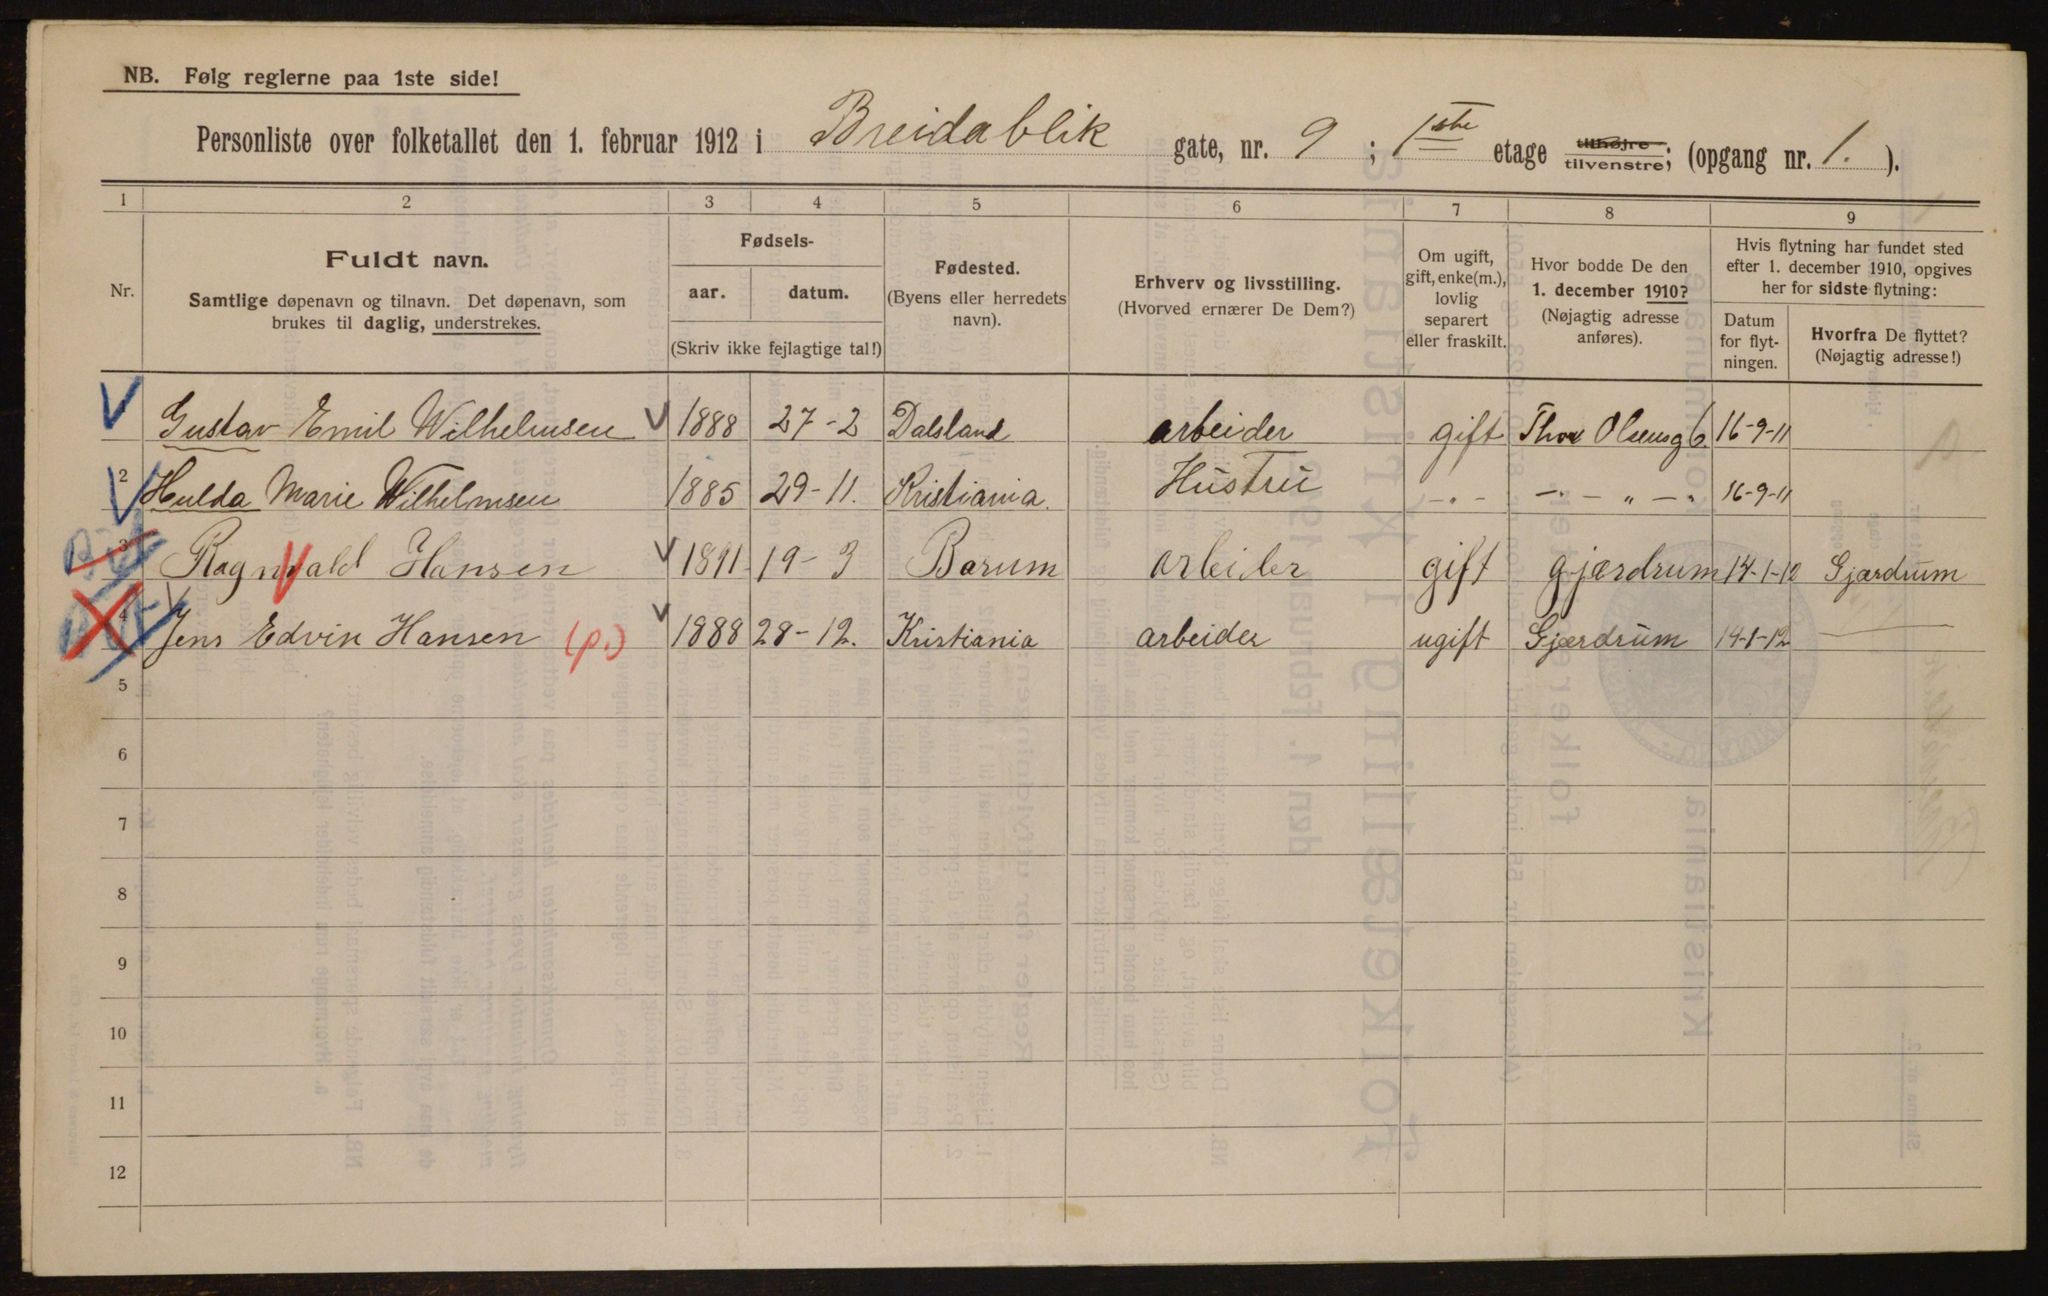 NB. Følg reglerne paa 1ste side!
Personliste over folketallet den 1. februar 1912 i Breidablik gate, nr. 9 ; 1ste etage tilhøjre tilvenstre; (opgang nr. 1. ).
1 2 3 4 5 6 7 8 9
Nr.
Fuldt navn.
Samtlige døpenavn og tilnavn. Det døpenavn, som
brukes til daglig, understrekes.
Fødsels-
aar. datum.
(Skriv ikke fejlagtige tal!)
Fødested.
(Byens eller herredets
navn).
Erhverv og livsstilling.
(Hvorved ernærer De Dem?)
Om ugift,
gift, enke(m.),
lovlig
separert
eller fraskilt.
Hvor bodde De den
1. december 1910?
(Nøjagtig adresse
anføres).
Hvis flytning har fundet sted
efter 1. december 1910, opgives
her for sidste flytning:
Datum
for flyt-
ningen.
Hvorfra De flyttet?
(Nøjagtig adresse!)
Gustav Emil Wilhelmsen 1888 27-2 Dalsland arbeider gift Thor Olsensg 6 16-9-11
2 Hulda Marie Wilhelmsen 1885 29-11. Kristiania. Hustru -"- -"- -"- 16-9-11
3 Ragnvald Hansen 19-3 Barum arbeider gift gjærdrum 14-1-12 Gjærdrum
4 Jens Edvin Hansen (p.) 1888 28-12. Kristiania arbeider ugift Gjærdrum 14-1-12
5
6
7
8
9
10
11
12